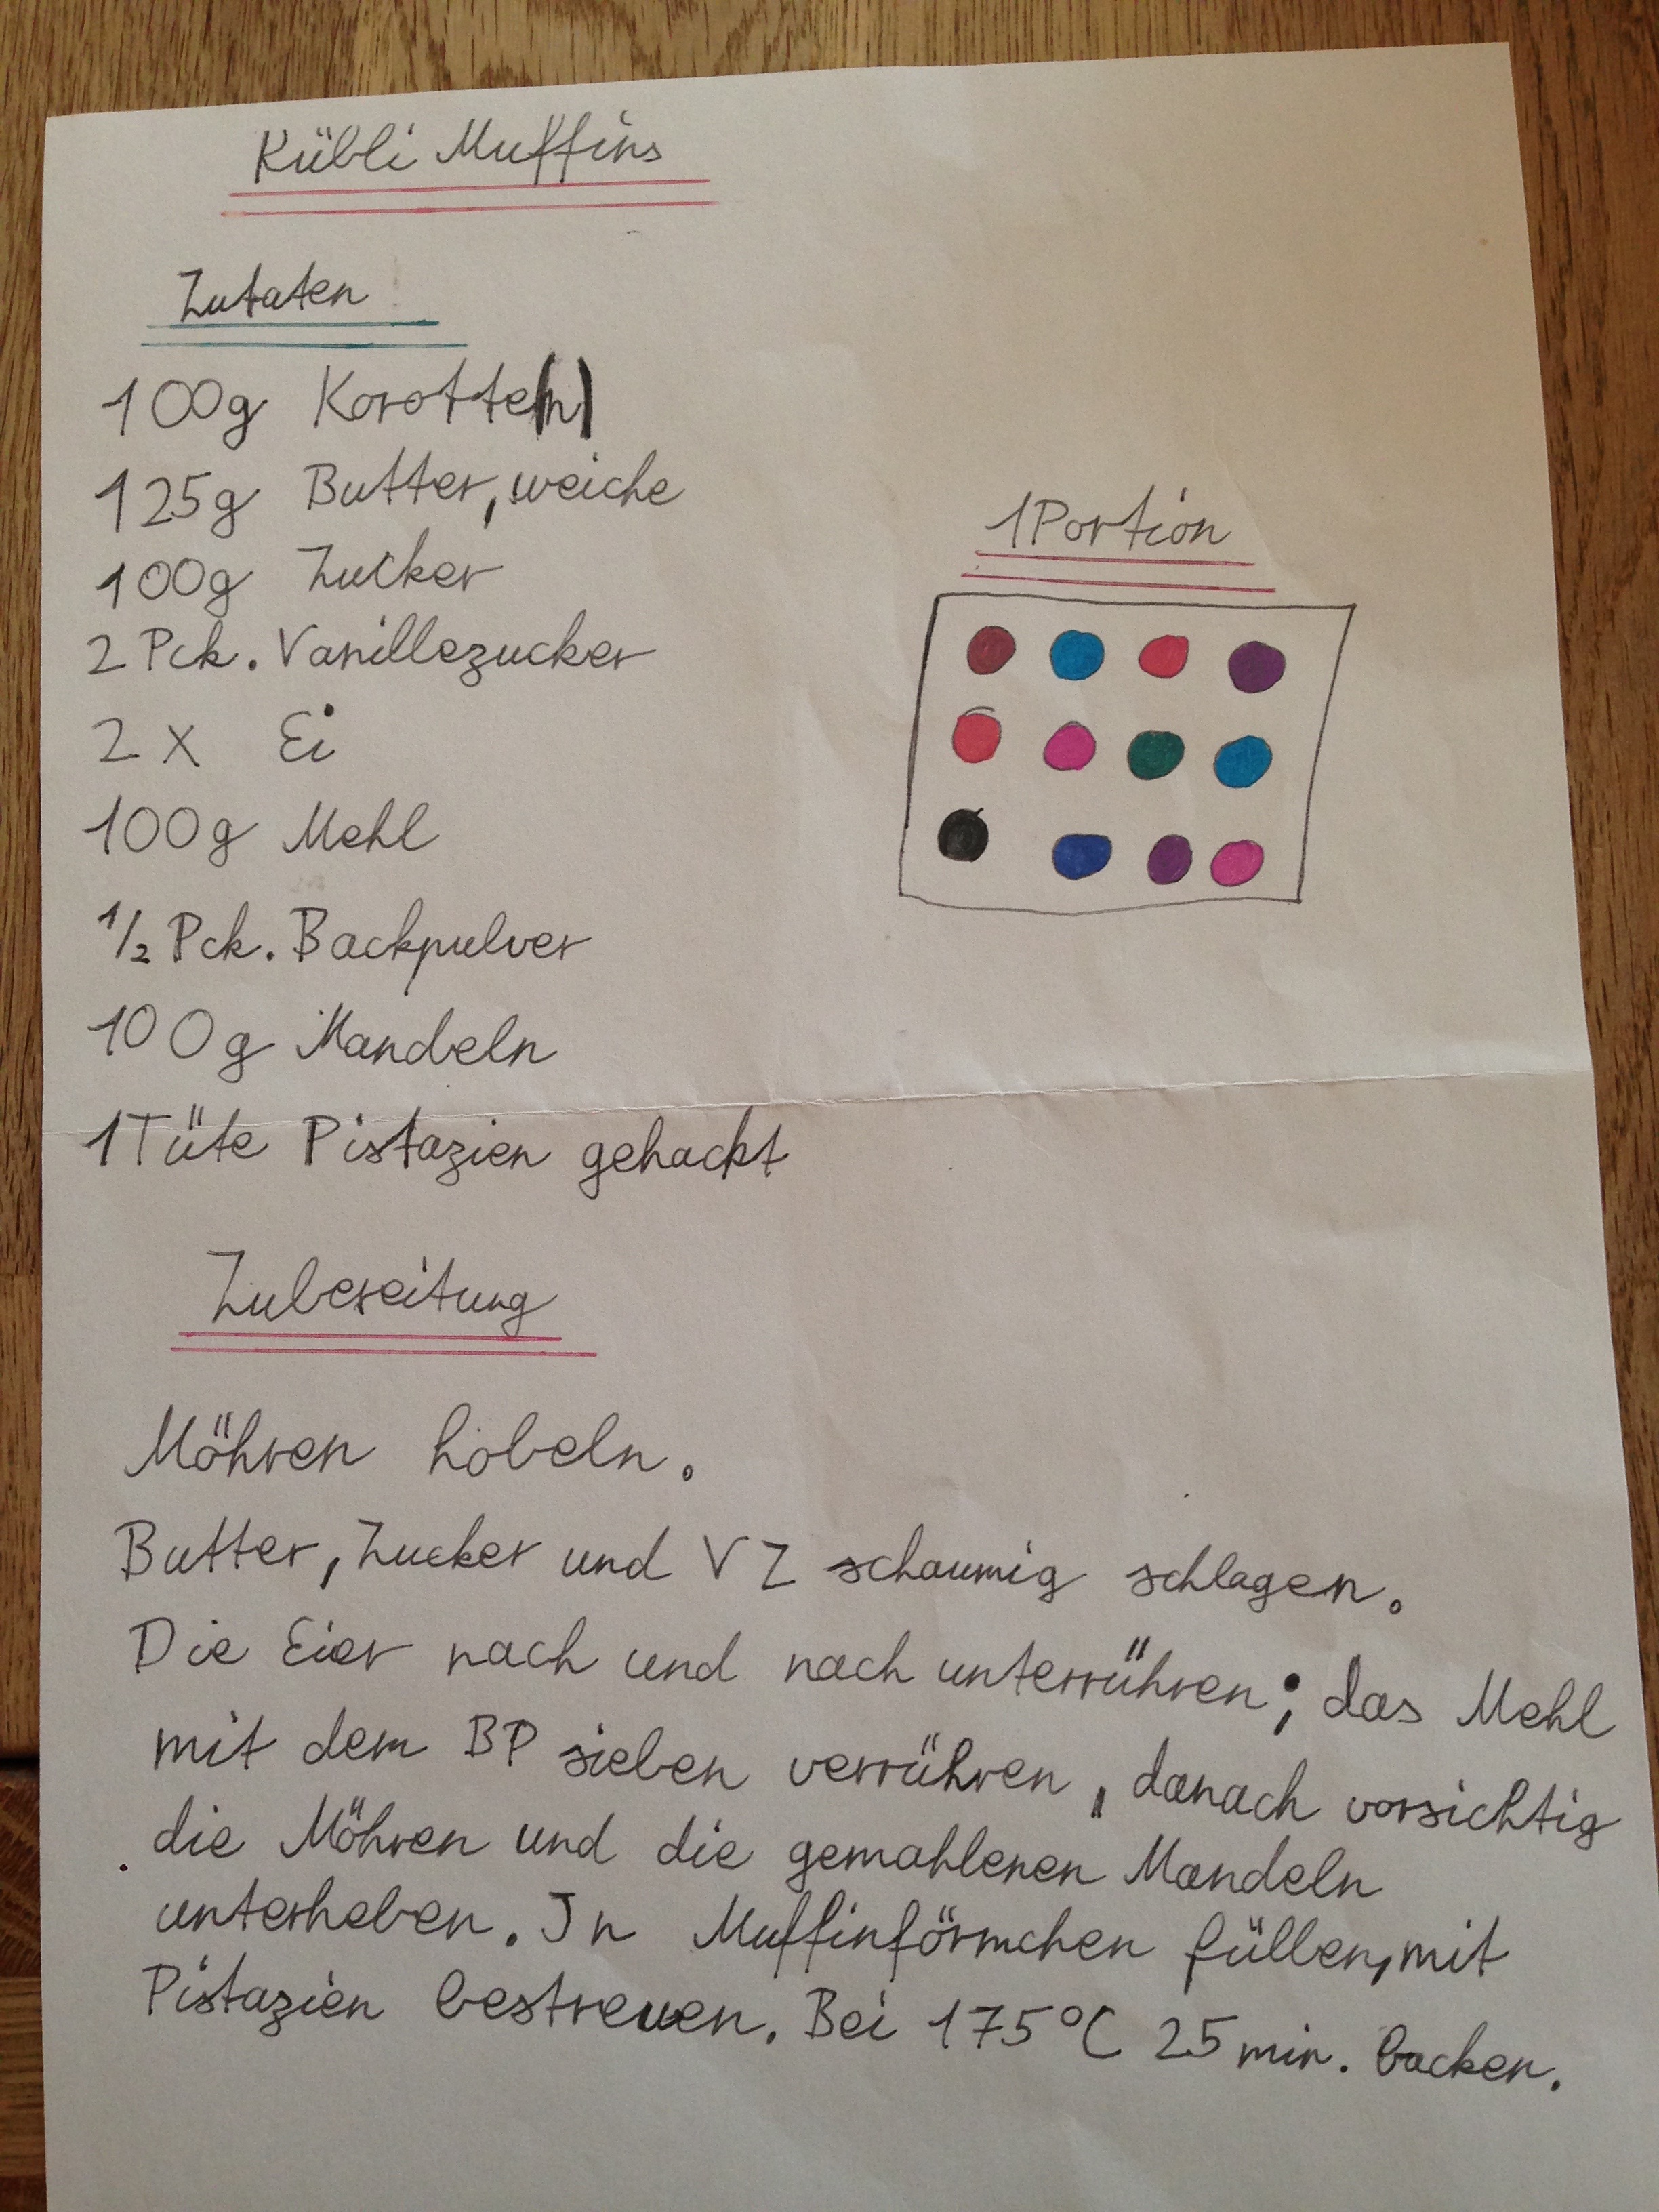 Kübli Muffins
Zutaten
100g Korotte(n)
125g Butter, weiche
100g Zucker
2 Pck. Vanillezucker
2 x Ei
100g Mehl
1/2 Pck. Backpulver
100g Mandeln
1 Tüte Pistazien gehackt
1 Portion
Zubereitung
Möhren hobeln.
Butter, Zucker und VZ schaumig schlagen.
Die Eier nach und nach unterrühren; das Mehl
mit dem BP sieben verrühren, danach vorsichtig
die Möhren und die gemahlenen Mandeln
unterheben. In Muffinförmchen füllen, mit
Pistazien bestreuen. Bei 175°C 25 min. backen.